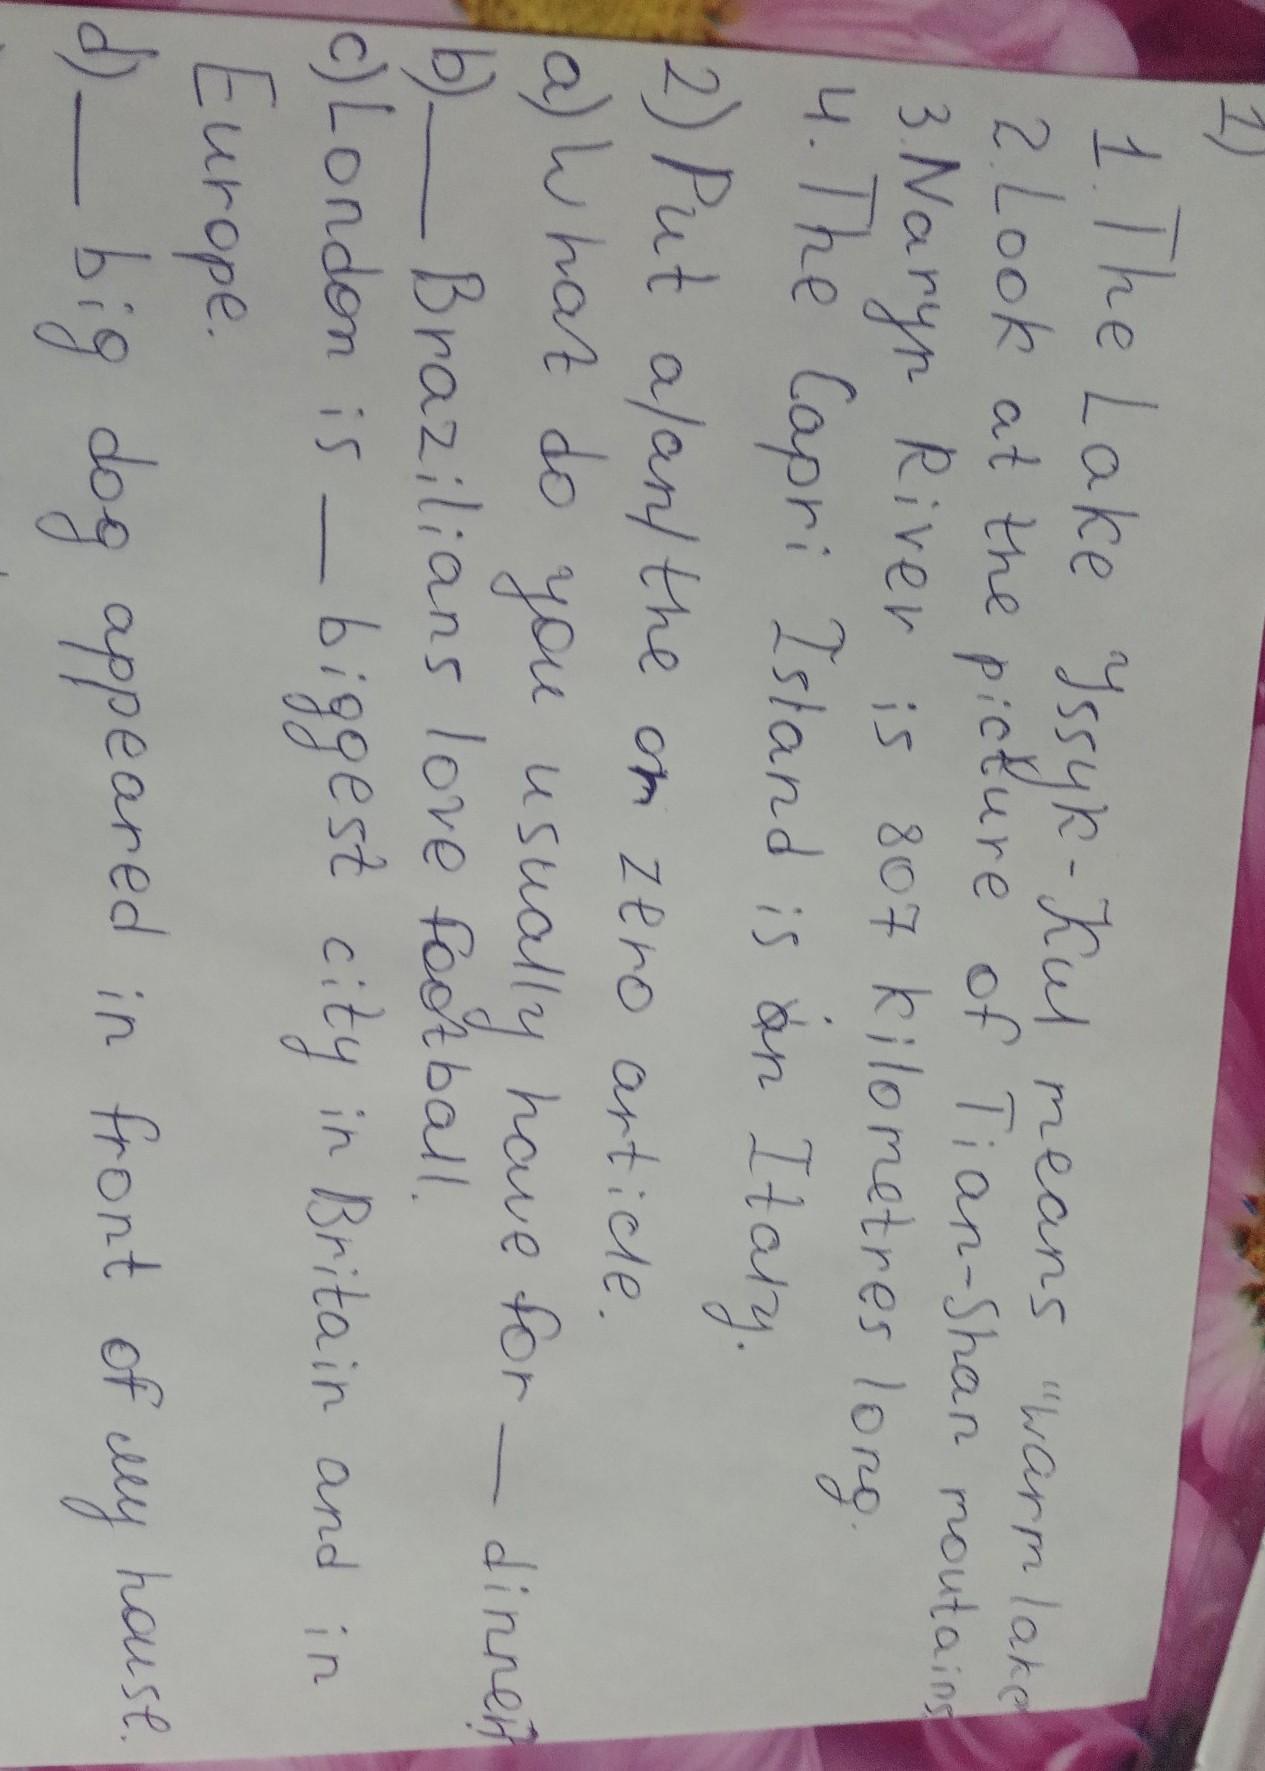 1)
1. The Lake Yssyk-Kul means "warm lake
2. Look at the picture of Tian-Shan moutains
3. Naryn River is 807 kilometres long.
4. The Capri Island is in Italy.
2) Put a/an/the or zero article.
a) What do you usually have for — dinner?
b) — Brazilians love football.
c) London is — biggest city in Britain and in
Europe.
d) — big dog appeared in front of my house.